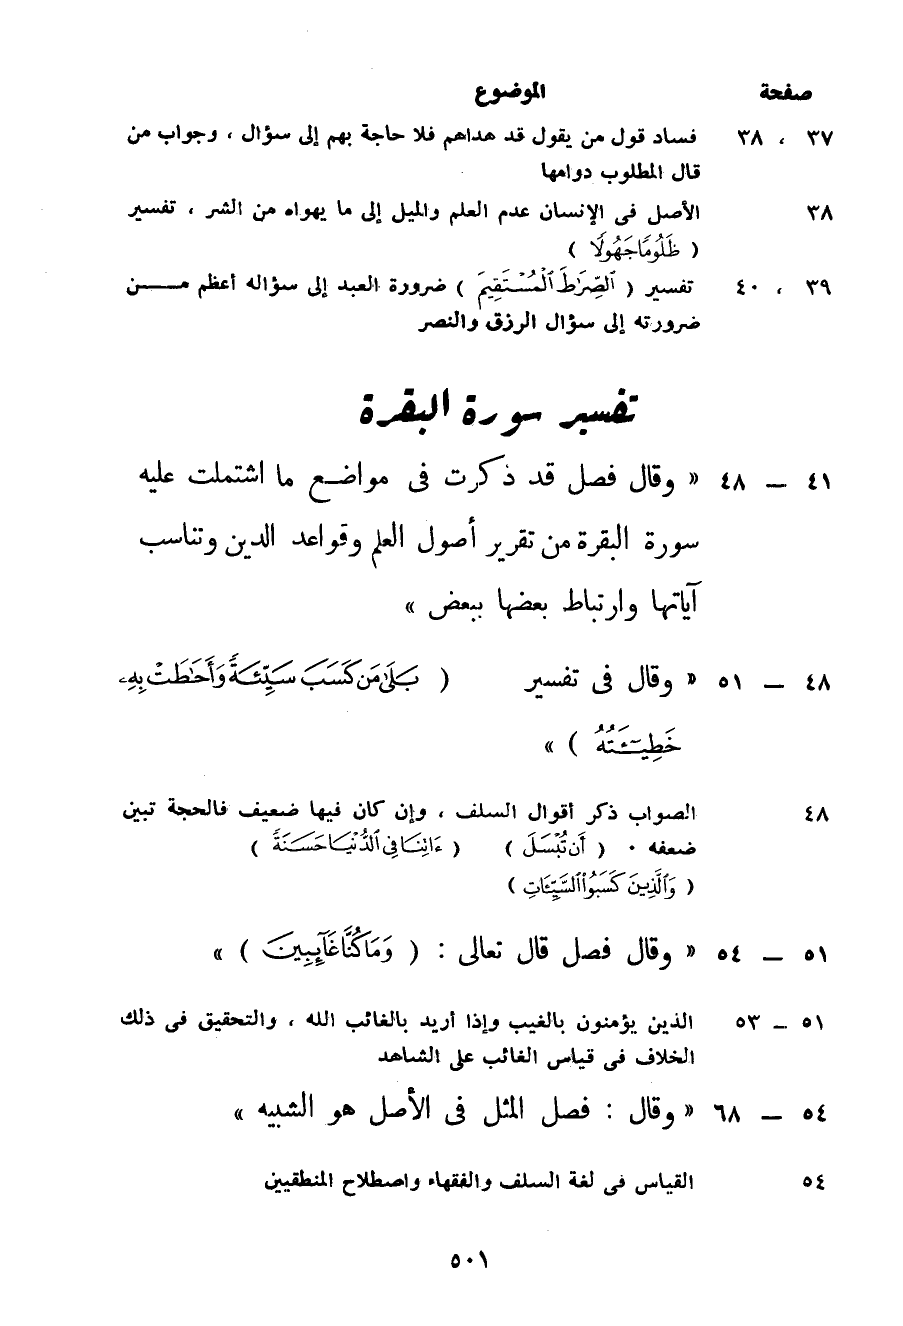 صفحة الموضوع
٣٧ ، ٣٨ فساد قول من يقول قد هداهم فلا حاجة بهم إلى سؤال ، وجواب من
قال المطلوب دوامها
٣٨ الأصل فى الإنسان عدم العلم والميل إلى ما يهواه من الشر ، تفسير
( ظَلُومًا جَهُولًا )
٣٩ ، ٤٠ تفسير ( ٱلصِّرَٰطَ ٱلْمُسْتَقِيمَ ) ضرورة العبد إلى سؤاله أعظم مـــن
ضرورته إلى سؤال الرزق والنصر
تفسير سورة البقرة
٤١ ــ ٤٨ « وقال فصل قد ذكرت فى مواضع ما اشتملت عليه
سورة البقرة من تقرير أصول العلم وقواعد الدين وتناسب
آياتها وارتباط بعضها ببعض »
٤٨ ــ ٥١ « وقال فى تفسير ( بَلَىٰ مَن كَسَبَ سَيِّئَةً وَأَحَٰطَتْ بِهِۦ
خَطِيٓـَٔتُهُۥ ) »
٤٨ الصواب ذكر أقوال السلف ، وإن كان فيها ضعيف فالحجة تبين
ضعفه ٠ ( أَن تُبْسَلَ ) ( ءَاتِنَا فِى ٱلدُّنْيَا حَسَنَةً )
( وَٱلَّذِينَ كَسَبُوا۟ ٱلسَّيِّـَٔاتِ )
٥١ ــ ٥٤ « وقال فصل قال تعالى : ( وَمَا كُنَّا غَآئِبِينَ ) »
٥١ ــ ٥٣ الذين يؤمنون بالغيب وإذا أريد بالغائب الله ، والتحقيق فى ذلك
الخلاف فى قياس الغائب على الشاهد
٥٤ ــ ٦٨ « وقال : فصل المثل فى الأصل هو الشبيه »
٥٤ القياس فى لغة السلف والفقهاء واصطلاح المنطقيين
٥٠١